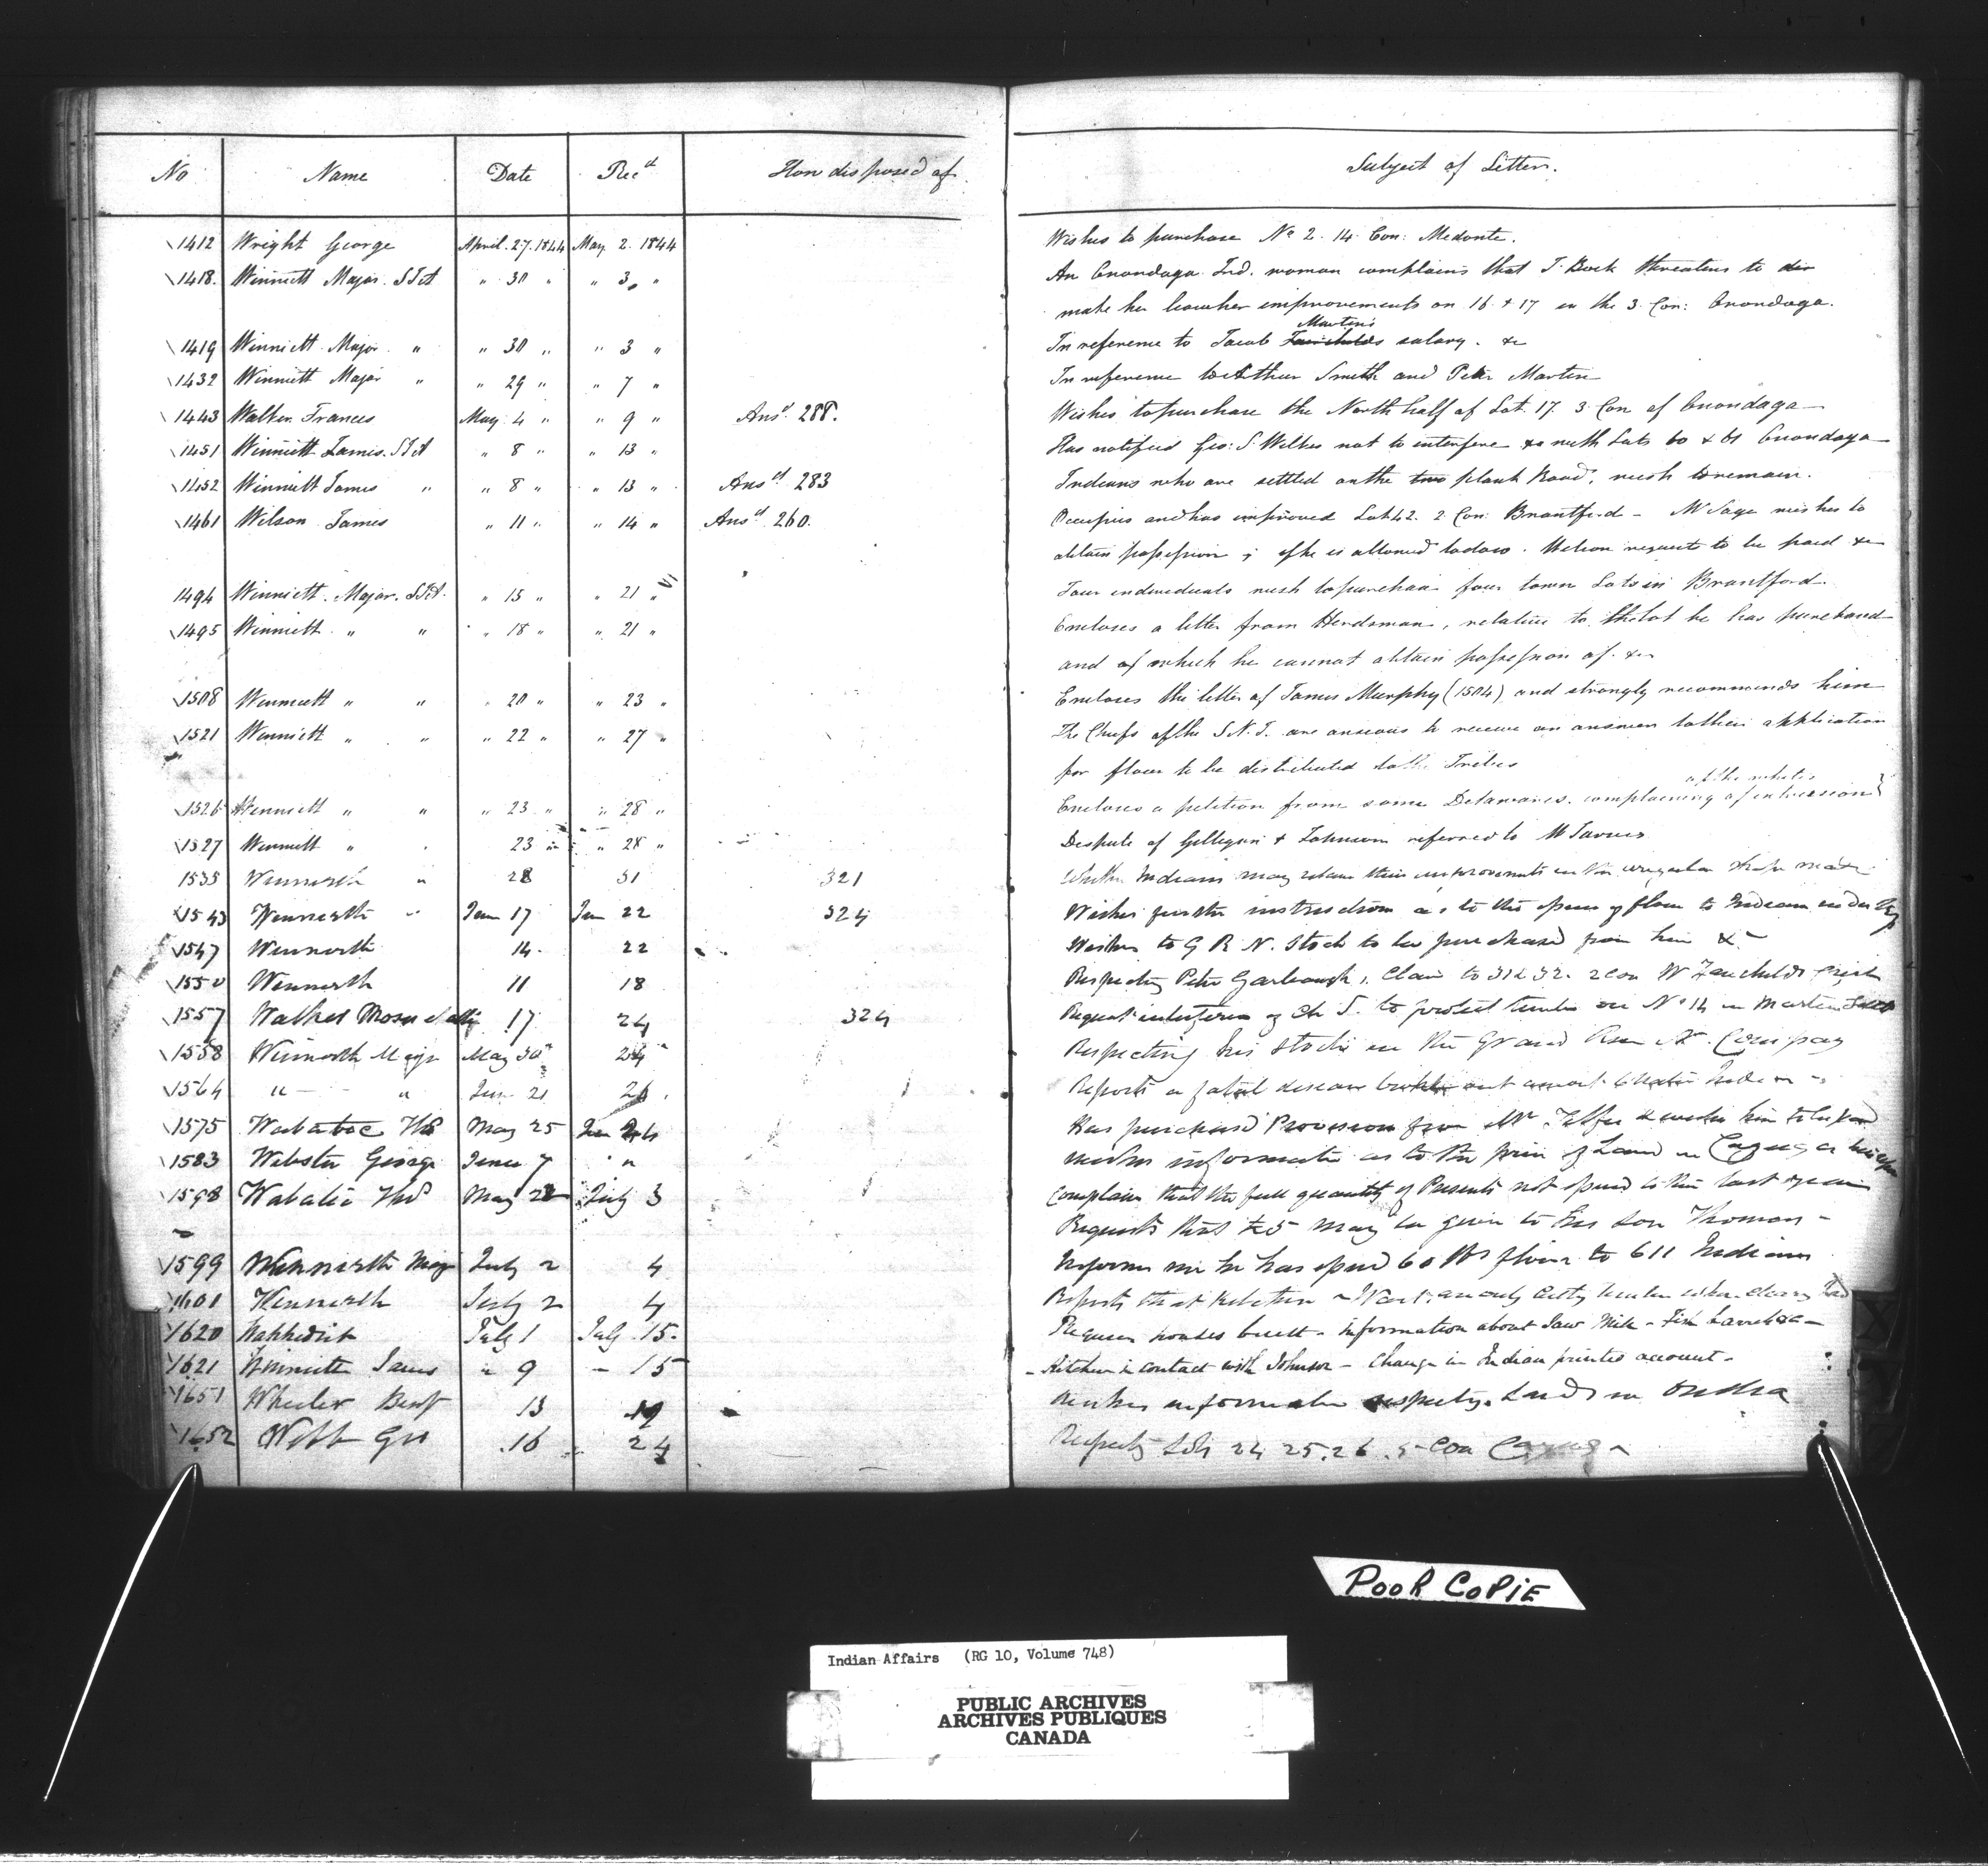 No Name Date Recd How disposed of Subject of Letter.
1412 Wright George April. 27. 1844 May 2. 1844 Wishes to purchase No 2. 14 Con: Medonte.
1418. Winniett Major. SIA " 30 " " 3 " An Onondaga Ind. woman complains that J. Bock threatens to
make her leave her improvements on 16 & 17 in the 3 Con: Onondaga.
Martin's
1419 Winniett Major " " 30 " " 3 " In reference to Jacob Fairchilds salary. &c
1432 Winniett Major " " 29 " " 7 " In reference to Arthur Smith and Peter Martin
1443 Walker Frances May 4 " " 9 " Ansd 288. Wishes to purchase the North half of Lot 17. 3 Con of Onondaga
1451 Winniett James. SIA " 8 " " 13 " Has notified Geo: S. Wilkes not to interfere &c with Lots 60 & 61 Onondaga
1452 Winniett James " " 8 " " 13 " Ansd 283 Indians who are settled on the two plank Road, wish to remain.
1461 Wilson James " 11 " " 14 " Ansd 260. Occupies and has improved Lot 42. 2 Con: Brantford - Mr Sage wishes to
obtain possession ; if he is allowed to do so. Wilson request to be paid &c
1494 Winniett. Major. SIA. " 15 " " 21 " Four individuals wish to purchase four town Lots in Brantford.
1495 Winniett " " " 18 " " 21 " Encloses a letter from Herdsman, relative to the lot he has purchased
and of which he cannot obtain possession of. &c
1508 Winniett " " " 20 " " 23 " Encloses the letter of James Murphy (1504) and strongly recommends him
1521 Winniett " " " 22 " " 27 " The Chiefs of the S.N.I. are anxious to receive an answer to their application
for flour to be distributed to the Tribes
of the whites
1526 Winniett " " " 23 " " 28 " Encloses a petition from some Delawares. complaining of intrusion
1527 Winniett " " 23 " " 28 " Dispute of Gilligan & Johnson referred to Mr Jarvis
1535 Winniett " 28 31 321 Whether Indians may retain their improvements in the
1543 Winniett " June 17 June 22 324 Wishes further instructions as to the issue of flour to Indians
1547 Winniett 14. 22 Wishes to G R N. Stock to be purchased from him &c
1550 Winniett 11 18 Respecting Peter claim to 31 & 32. 2 Con W Fairchilds Creek
1557 Walker Moses 17 24 324 Request interference of Ch S. to protect timber on No 14 in Martin
1558 Winniett Major May 30 24 Respecting his Stock in the Grand River N. Company
1564 " " June 21 26. Reports a fatal disease broken out
1575 Wabatic Ths May 25 Has purchased Provision from Mr
1583 Webster George June 7 " wishes information as to the price of Land in Cayuga
1598 Wabatic Ths May 28 July 3 Complains that the full quantity of Presents not issued to him last year
Requests that £5 may be given to his Son Thomas -
1599 Winniett Maj July 2 4 Informs me he has issued 60 lbs flour to 611 Indians
1601 Winniett July 2 4 Reports that
1620 July 1 July 15. houses built - information about Saw Mill - Fish Barrels &c -
1621 Winniett James " 9 - 15 - Kitchen in contact with Johnson - Change in Indian printed account -
1651 Wheeler Benj 13 19 Wishes information respecting Lands in
1652 Webb Geo 16 24 Respecting Lots 24 25. 26. 5 Con Cayuga
POOR COPIE
Indian Affairs (RG 10, Volume 748)
PUBLIC ARCHIVES
ARCHIVES PUBLIQUES
CANADA